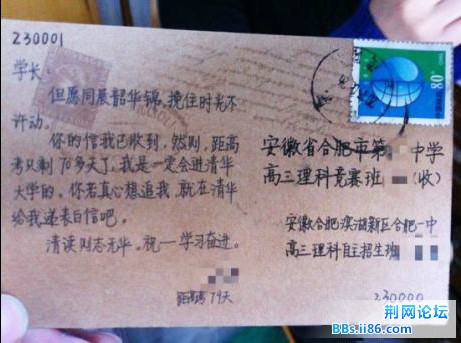 230001
学长:
但愿同展韶华锦,挽住时光不
许动。
你的信我已收到,然则,距高
考只剩70多天了,我是一定会进清华
大学的,你若真心想追我,就在清华
给我递表白信吧。
清读则志无华。祝一学习奋进。
距高考79天
80
安徽省合肥市第 中学
高三理科竞赛班 (收)
安徽合肥滨湖新区合肥一中
高三理科自主招生班
230000
荆网论坛
BBs.ii86.com